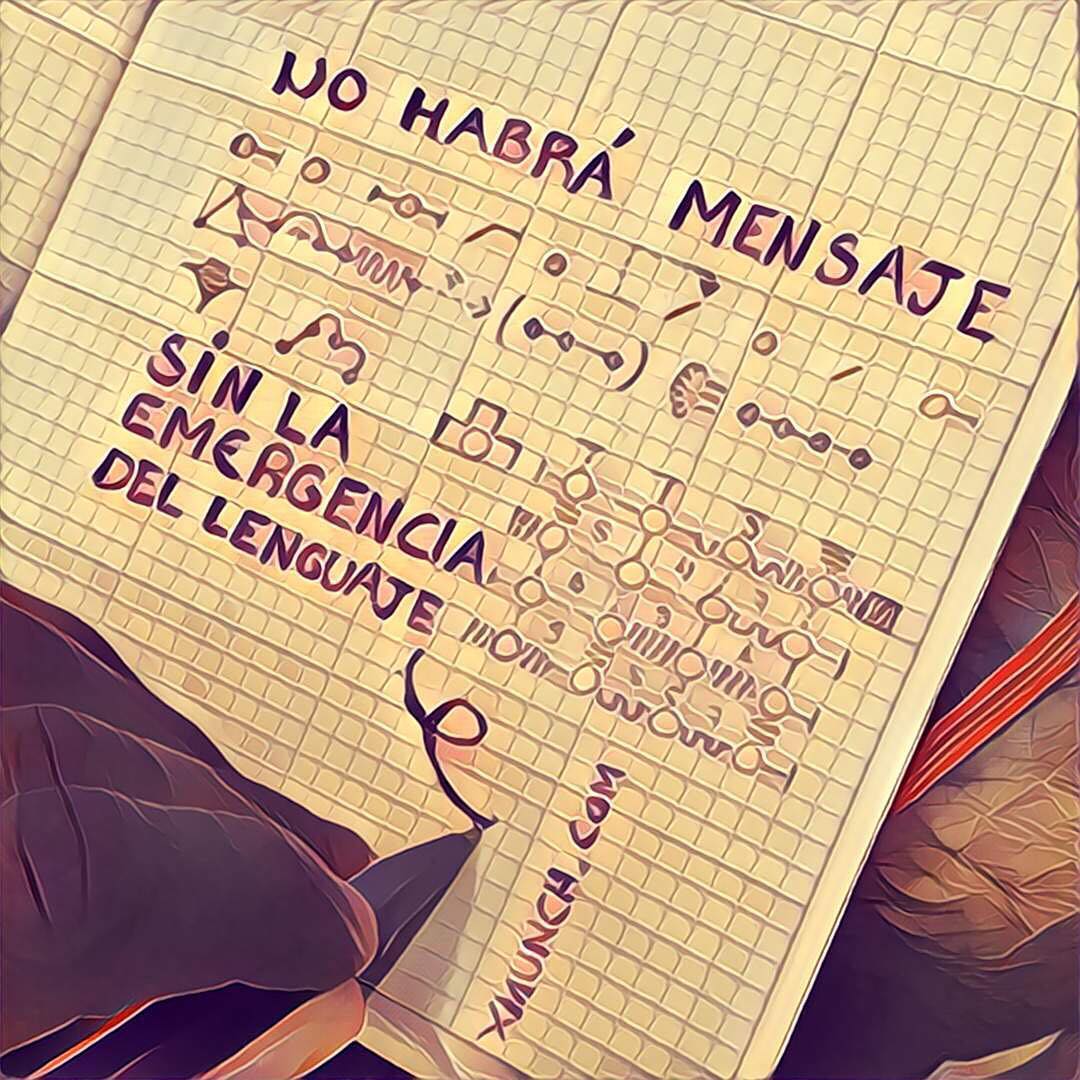 NO HABRÁ MENSAJE
SIN LA
EMERGENCIA
DEL LENGUAJE
XMUNCH.COM